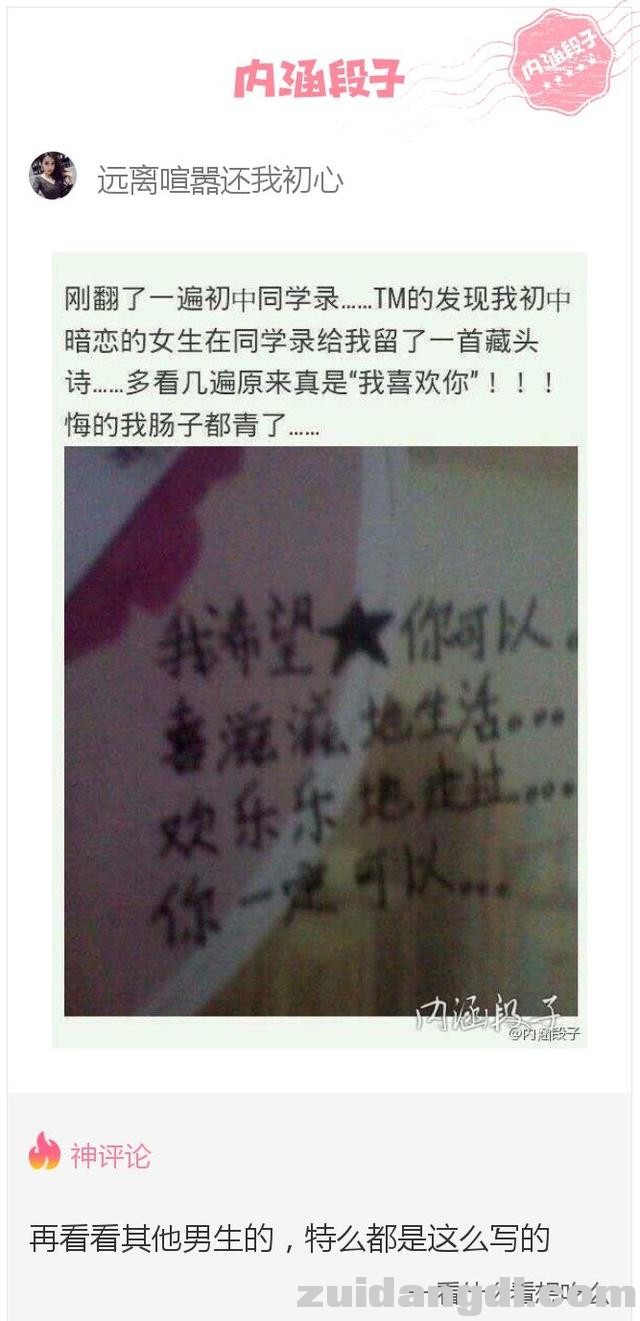 内涵段子
内涵段子
远离喧嚣还我初心
刚翻了一遍初中同学录……TM的发现我初中
暗恋的女生在同学录给我留了一首藏头
诗……多看几遍原来真是“我喜欢你”！！！
悔的我肠子都青了……
我希望★你可以.
喜滋滋地生活...
欢乐乐地走过...
你一定可以...
内涵段子
@内涵段子
神评论
再看看其他男生的，特么都是这么写的
zuidangdi.com